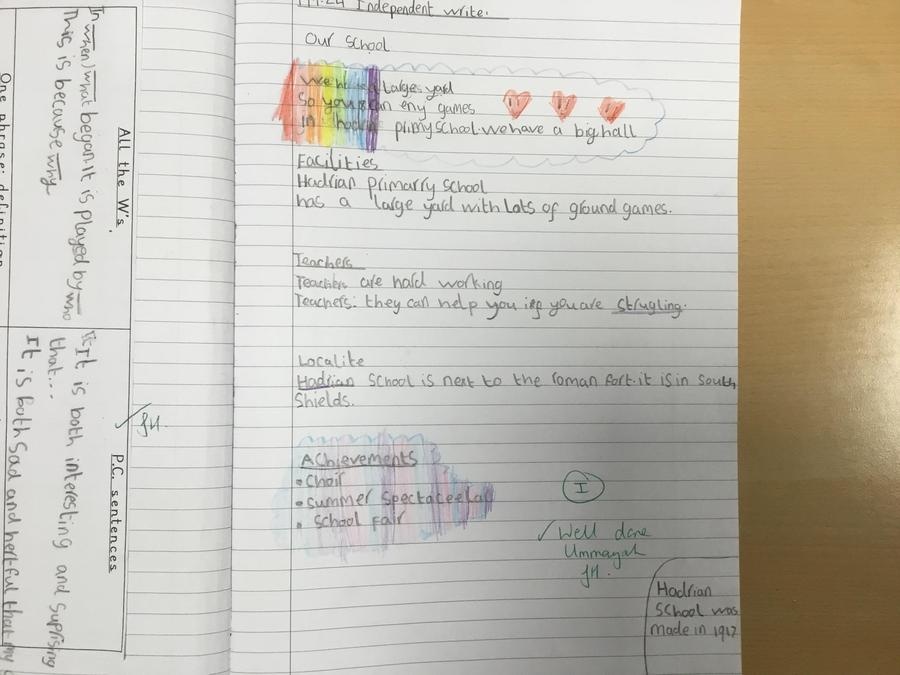 Independent write.
Our School
We have a large yard
So you can eny games
in hadrian primy School. we have a big hall
Facilities
Hadrian primarry School
has a large yard with Lots of ground games.
Teachers
Teachers are hard working
Teachers: they can help you if you are strugling.
Localite
Hadrian School is next to the roman fort. it is in South
Shields.
Achievements
• Choir
• Summer Spectaceelar
• School fair
I
✓ Well done
Ummayah
JH.
Hadrian
School was
made in 1912
All the W's.
In when what began. it is played by who
This is because why
One phrase: definition
P.C. sentences
It is both interesting and suprising
that...
It is both sad and hertful that my
✓ JH.